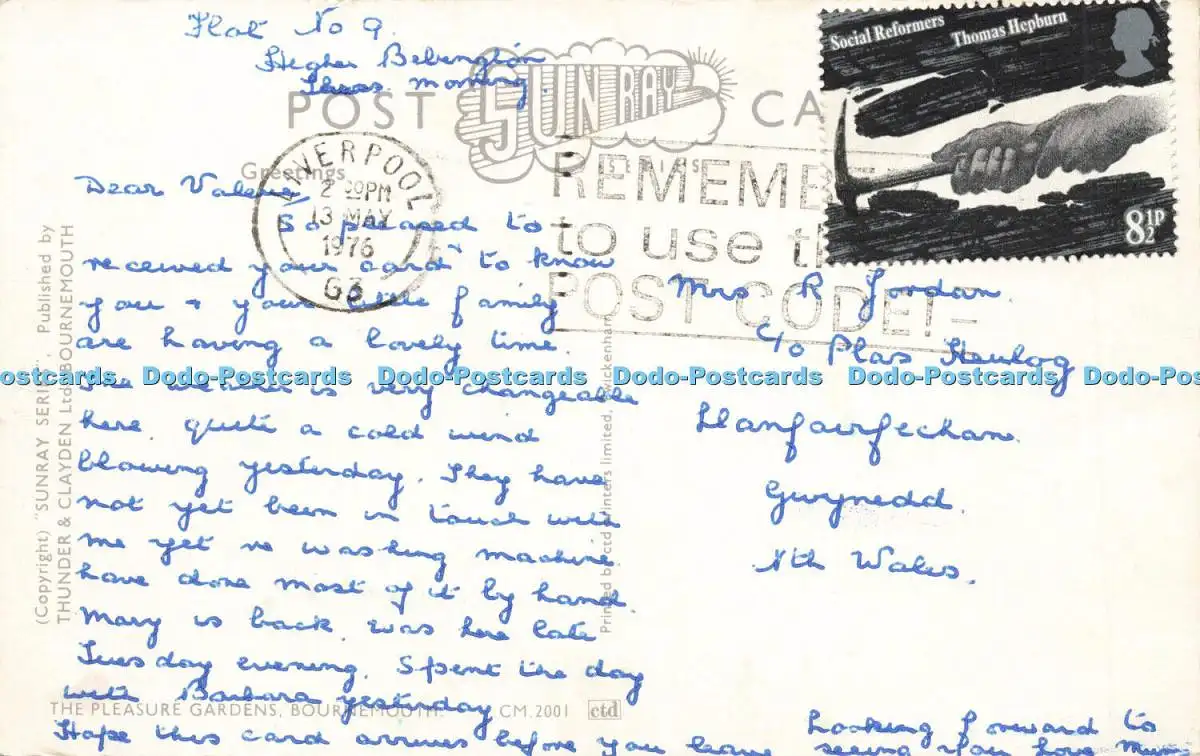 Flat No 9.
Higher Bebington
Thurs. morning.
POST CA
SUNRAY
SERIES
Social Reformers Thomas Hepburn
8½P
LIVERPOOL
2 PM
13 MAY
1976
REMEMBE
to use th
POST CODE!-
Greetings
Dear Valerie
So pleased to
received your card to know
you + your little family
are having a lovely time.
The weather is very changeable
here. quite a cold wind
blowing yesterday. They have
not yet been in touch with
me yet no washing machine.
have done most of it by hand.
Mary is back. was here late
Tuesday evening. Spent the day
with Barbara yesterday
Hope this card arrives before you leave
Looking forward to
seeing you love Mum
Mrs R Jordan.
C/o Plas Heulog
Llanfairfechan.
Gwynedd.
Nth Wales.
(Copyright) "SUNRAY SERIES". Published by
THUNDER & CLAYDEN Ltd BOURNEMOUTH
Printed by ctd printers limited, Twickenham
THE PLEASURE GARDENS, BOURNEMOUTH. CM.2001 ctd
Dodo-Postcards Dodo-Postcards Dodo-Postcards Dodo-Postcards Dodo-Postcards